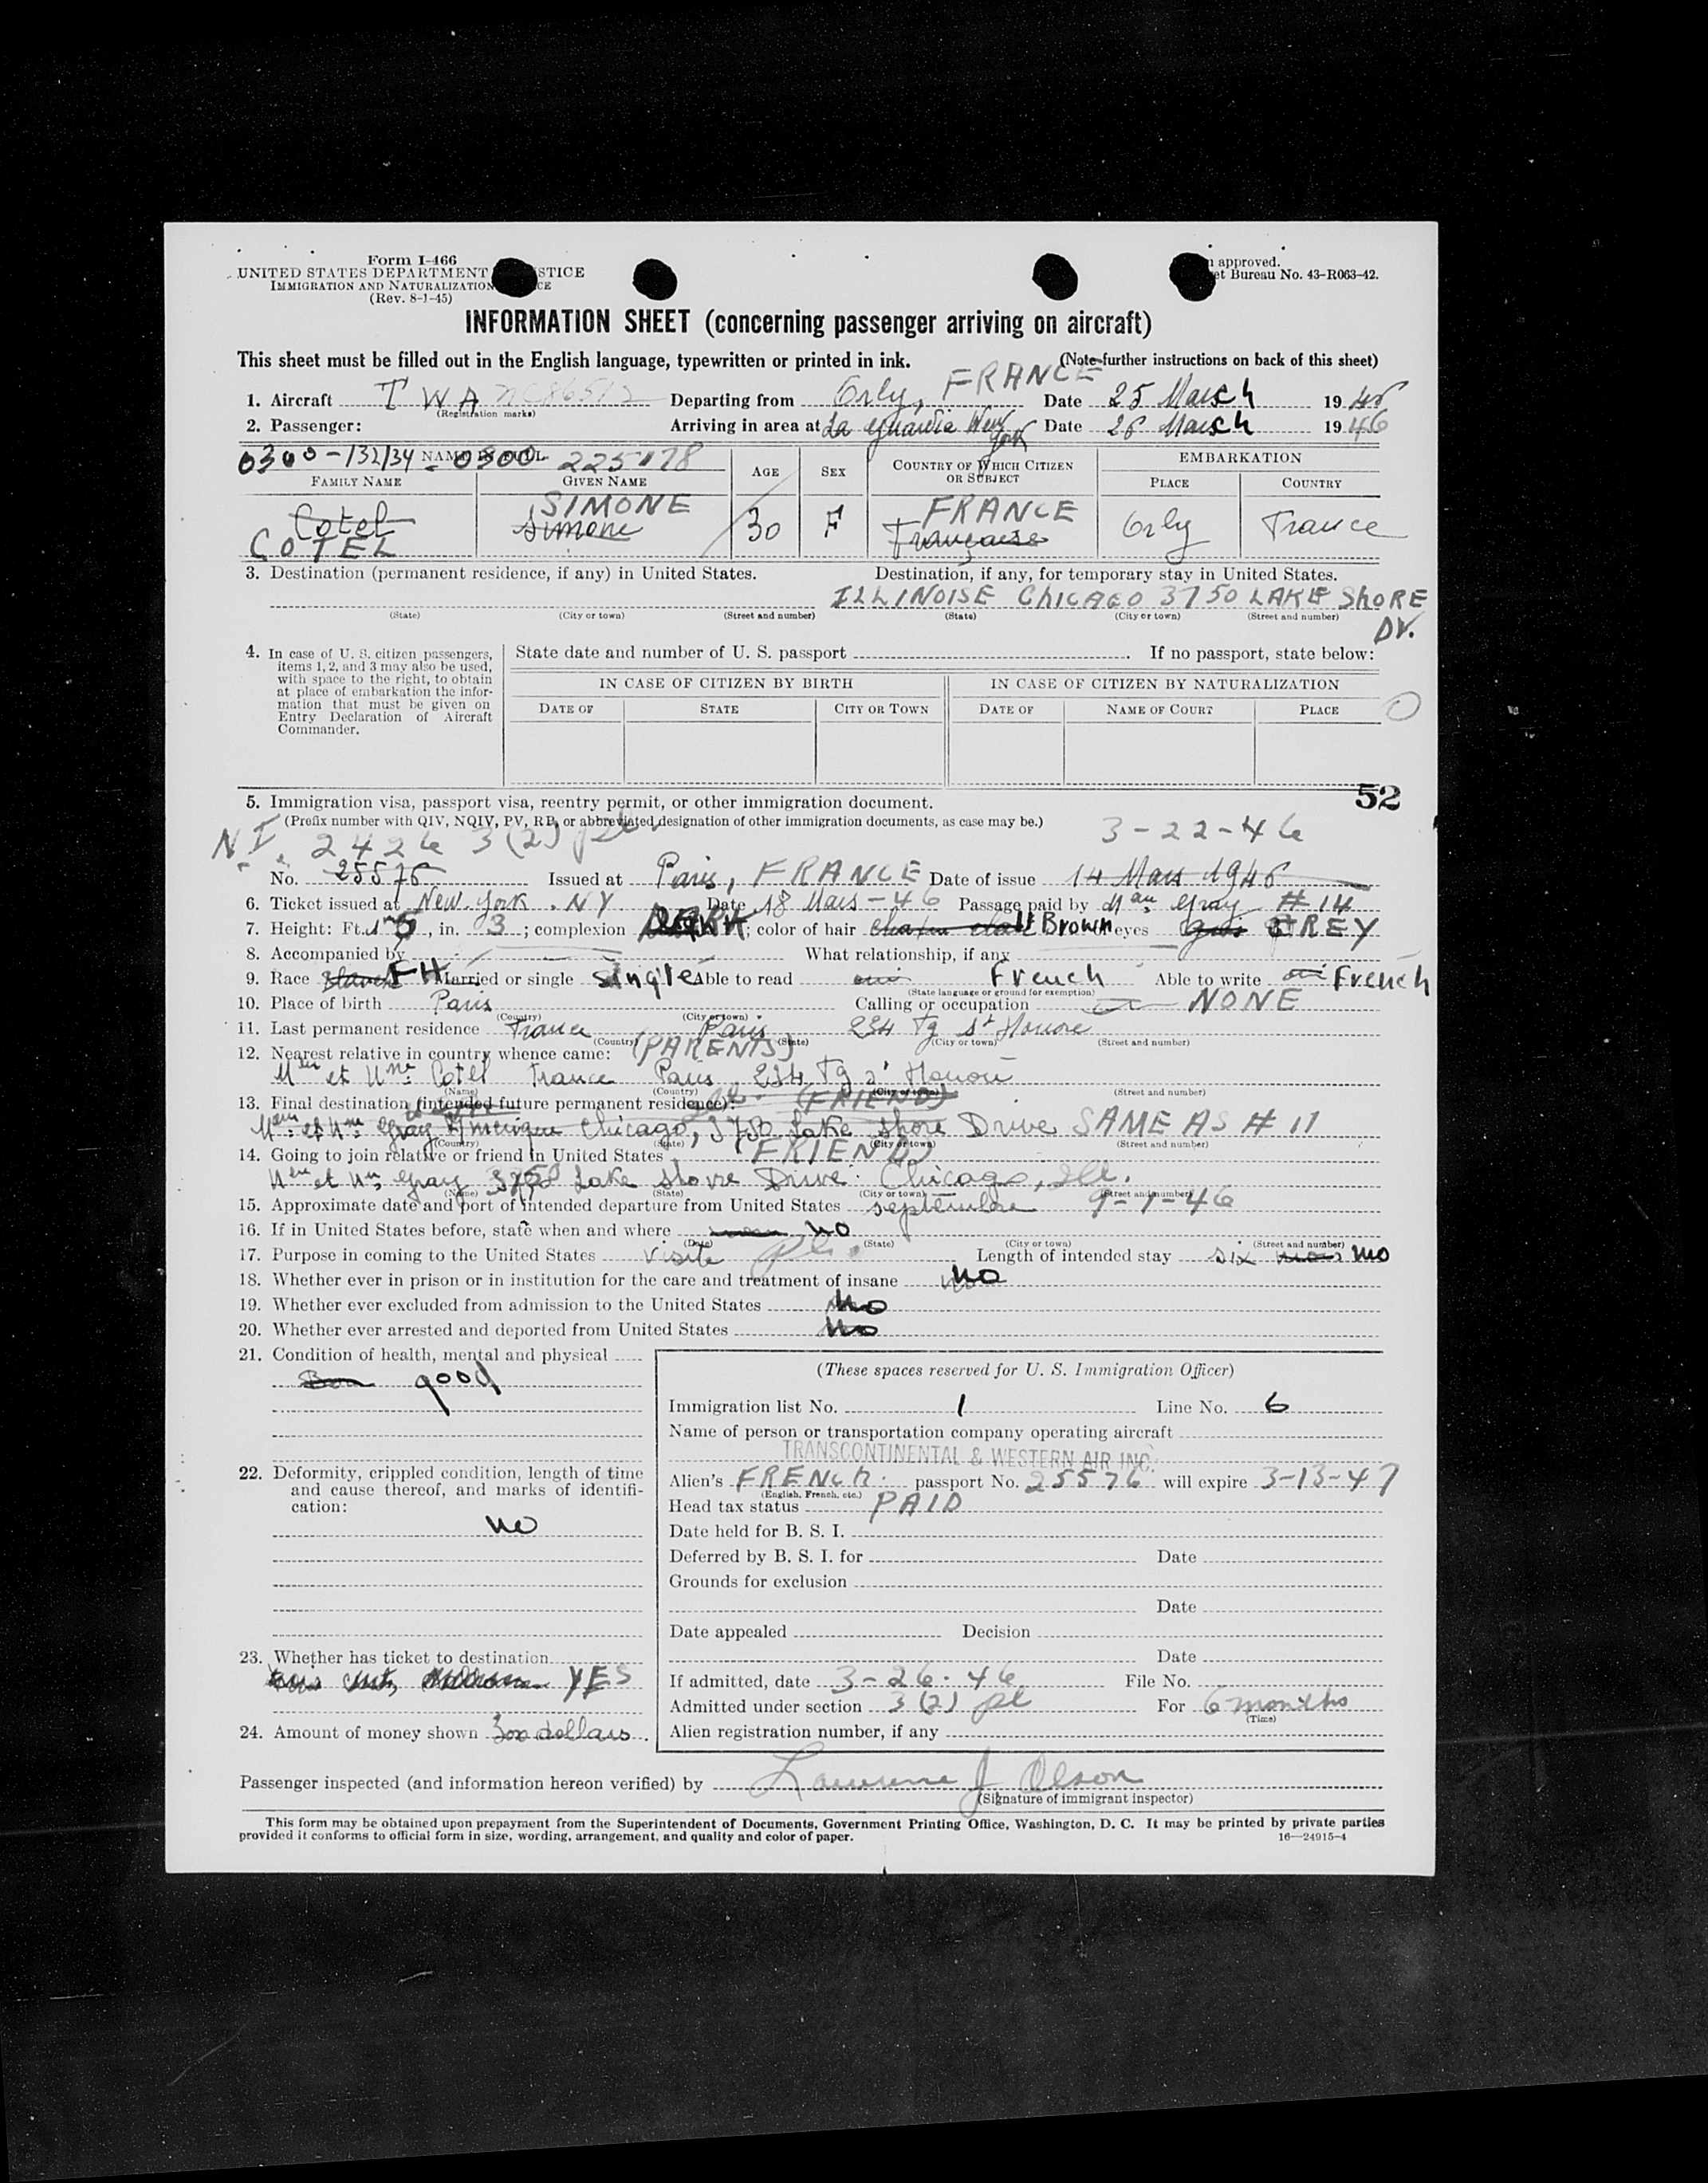 Form I-466
UNITED STATES DEPARTMENT STICE
IMMIGRATION AND NATURALIZATION CE
(Rev. 8-1-45)
approved.
et Bureau No. 43-R063-42.
INFORMATION SHEET (concerning passenger arriving on aircraft)
This sheet must be filled out in the English language, typewritten or printed in ink. (Note further instructions on back of this sheet)
1. Aircraft TWA NC86512 (Registration marks) Departing from Orly, FRANCE Date 25 March 1946
2. Passenger: Arriving in area at La guardia New York Date 26 March 1946
0300-132/34 NAME IN FULL - 0300 225178
FAMILY NAME GIVEN NAME AGE SEX COUNTRY OF WHICH CITIZEN OR SUBJECT EMBARKATION PLACE COUNTRY
Cotel SIMONE Simone 30 F FRANCE Française Orly France
COTEL
3. Destination (permanent residence, if any) in United States. Destination, if any, for temporary stay in United States.
ILLINOISE CHICAGO 3750 LAKE SHORE DV.
(State) (City or town) (Street and number) (State) (City or town) (Street and number)
4. In case of U. S. citizen passengers, items 1, 2, and 3 may also be used, with space to the right, to obtain at place of embarkation the information that must be given on Entry Declaration of Aircraft Commander.
State date and number of U. S. passport If no passport, state below:
IN CASE OF CITIZEN BY BIRTH IN CASE OF CITIZEN BY NATURALIZATION
DATE OF STATE CITY OR TOWN DATE OF NAME OF COURT PLACE
52
5. Immigration visa, passport visa, reentry permit, or other immigration document.
(Prefix number with QIV, NQIV, PV, RP, or abbreviated designation of other immigration documents, as case may be.)
N.I. 2426 3(2) 3-22-46
No. 25576 Issued at Paris, FRANCE Date of issue 14 Mars 1946
6. Ticket issued at New York. NY Date 18 Mars-46 Passage paid by gray #14
7. Height: Ft. 5, in. 3; complexion DARK; color of hair Brown eyes GREY
8. Accompanied by What relationship, if any
9. Race FH Married or single Single Able to read oui French Able to write oui French
(State language or ground for exemption)
10. Place of birth Paris Calling or occupation NONE
(Country) (City or town) (State)
11. Last permanent residence France Paris 234 Fg St Honore
(Country) (City or town) (Street and number)
12. Nearest relative in country whence came: (PARENTS)
et Cotel France Paris 234 Fg St Honoré
(Name) (Country) (City or town) (Street and number)
13. Final destination (intended future permanent residence): (FRIEND)
et gray Amerique Chicago, 3750 Lake Shore Drive SAME AS # 11
(Country) (State) (City or town) (Street and number)
14. Going to join relative or friend in United States (FRIEND)
et gray 3750 Lake Shore Drive: Chicago, Ill.
(Name) (State) (City or town) (Street and number)
15. Approximate date and port of intended departure from United States septembre 9-1-46
16. If in United States before, state when and where no
(Date) (State) (City or town) (Street and number)
17. Purpose in coming to the United States Visite Length of intended stay six mois mo
18. Whether ever in prison or in institution for the care and treatment of insane no
19. Whether ever excluded from admission to the United States No
20. Whether ever arrested and deported from United States No
21. Condition of health, mental and physical
Bon good
22. Deformity, crippled condition, length of time and cause thereof, and marks of identification:
no
23. Whether has ticket to destination
YES
24. Amount of money shown 300 dollars.
(These spaces reserved for U. S. Immigration Officer)
Immigration list No. 1 Line No. 6
Name of person or transportation company operating aircraft
TRANSCONTINENTAL & WESTERN AIR INC.
Alien's FRENCH passport No. 25576 will expire 3-13-47
(English, French, etc.)
Head tax status PAID
Date held for B. S. I.
Deferred by B. S. I. for Date
Grounds for exclusion
Date
Date appealed Decision
Date
If admitted, date 3-26-46 File No.
Admitted under section 3(2) For 6 months
(Time)
Alien registration number, if any
Passenger inspected (and information hereon verified) by Lawrence J Olson
(Signature of immigrant inspector)
This form may be obtained upon prepayment from the Superintendent of Documents, Government Printing Office, Washington, D. C. It may be printed by private parties
provided it conforms to official form in size, wording, arrangement, and quality and color of paper. 16—24915-4